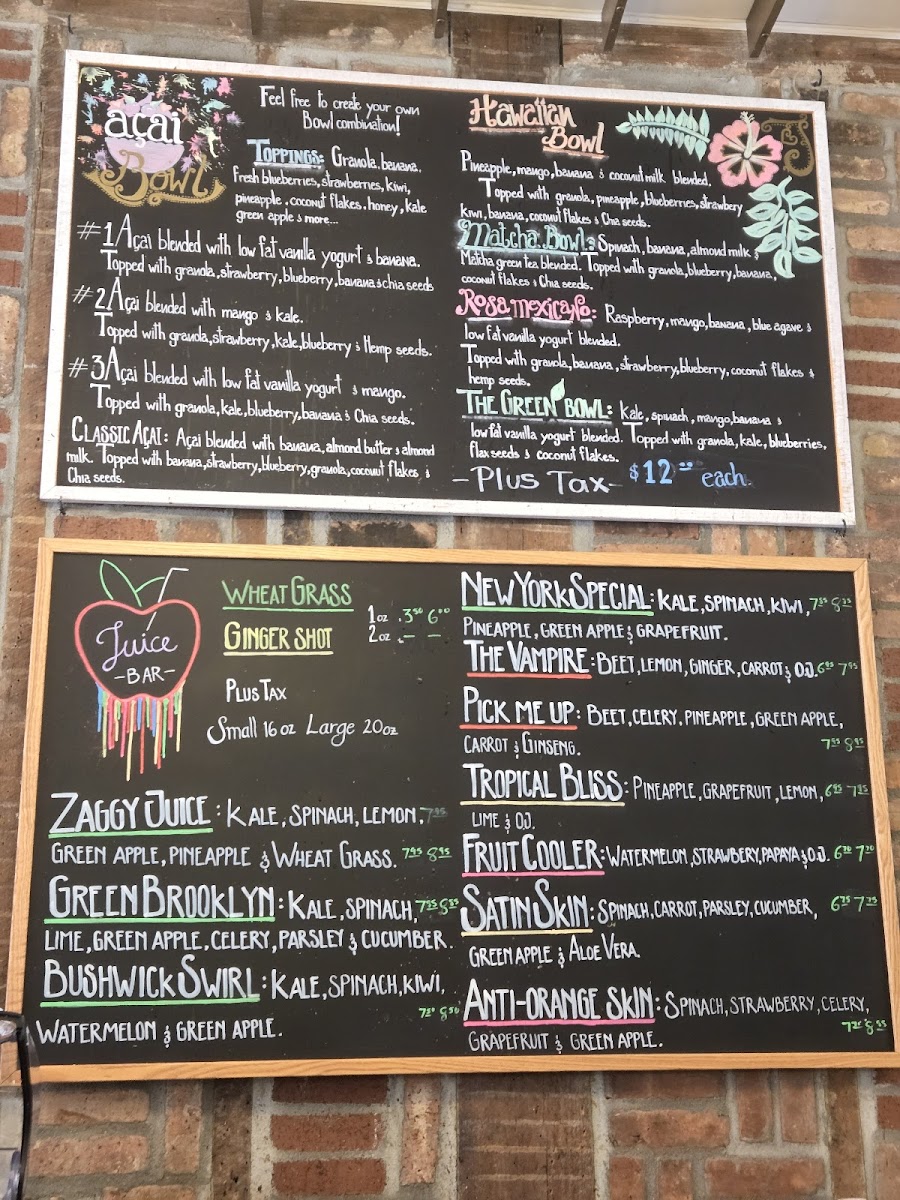 açai
Bowl
Feel free to create your own
Bowl combination!
TOPPINGS: Granola, banana,
Fresh blueberries, strawberries, kiwi,
pineapple, coconut flakes, honey, kale
green apple & more...
#1 Açai blended with low fat vanilla yogurt & banana.
Topped with granola, strawberry, blueberry, banana & chia seeds
#2 Açai blended with mango & kale.
Topped with granola, strawberry, kale, blueberry & Hemp seeds.
#3 Açai blended with low fat vanilla yogurt & mango.
Topped with granola, kale, blueberry, banana & Chia seeds.
CLASSIC AÇAI: Açai blended with banana, almond butter & almond
milk. Topped with banana, strawberry, blueberry, granola, coconut flakes &
Chia seeds.
Hawaiian
Bowl
Pineapple, mango, banana & coconut milk blended.
Topped with granola, pineapple, blueberries, strawbery
kiwi, banana, coconut flakes & Chia seeds.
Matcha Bowl: Spinach, banana, almond milk &
Matcha green tea blended. Topped with granola, blueberry, banana,
coconut flakes & Chia seeds.
Rosa mexicano: Raspberry, mango, banana, blue agave &
low fat vanilla yogurt blended.
Topped with granola, banana, strawberry, blueberry, coconut flakes &
hemp seeds.
THE GREEN BOWL: Kale, spinach, mango, banana &
low fat vanilla yogurt blended. Topped with granola, kale, blueberries,
flax seeds & coconut flakes.
-Plus Tax- $12 each.
Juice
-BAR-
WHEAT GRASS
GINGER SHOT
1oz .3.50 6.00
2oz . - -
PLUS TAX
Small 16 oz Large 20oz
ZAGGY JUICE: KALE, SPINACH, LEMON,
GREEN APPLE, PINEAPPLE & WHEAT GRASS. 7.95 8.95
GREEN BROOKLYN: KALE, SPINACH,
LIME, GREEN APPLE, CELERY, PARSLEY & CUCUMBER.
BUSHWICK SWIRL: KALE, SPINACH, KIWI,
WATERMELON & GREEN APPLE.
NEW YORK SPECIAL: KALE, SPINACH, KIWI,
PINEAPPLE, GREEN APPLE & GRAPEFRUIT.
THE VAMPIRE: BEET, LEMON, GINGER, CARROT & O.J.
PICK ME UP: BEET, CELERY. PINEAPPLE, GREEN APPLE,
CARROT & GINSENG. 7.95 8.95
TROPICAL BLISS: PINEAPPLE, GRAPEFRUIT, LEMON,
LIME & O.J.
FRUIT COOLER: WATERMELON, STRAWBERY, PAPAYA & O.J.
SATIN SKIN: SPINACH, CARROT, PARSLEY, CUCUMBER,
GREEN APPLE & ALOE VERA.
ANTI-ORANGE SKIN: SPINACH, STRAWBERRY, CELERY,
GRAPEFRUIT & GREEN APPLE.